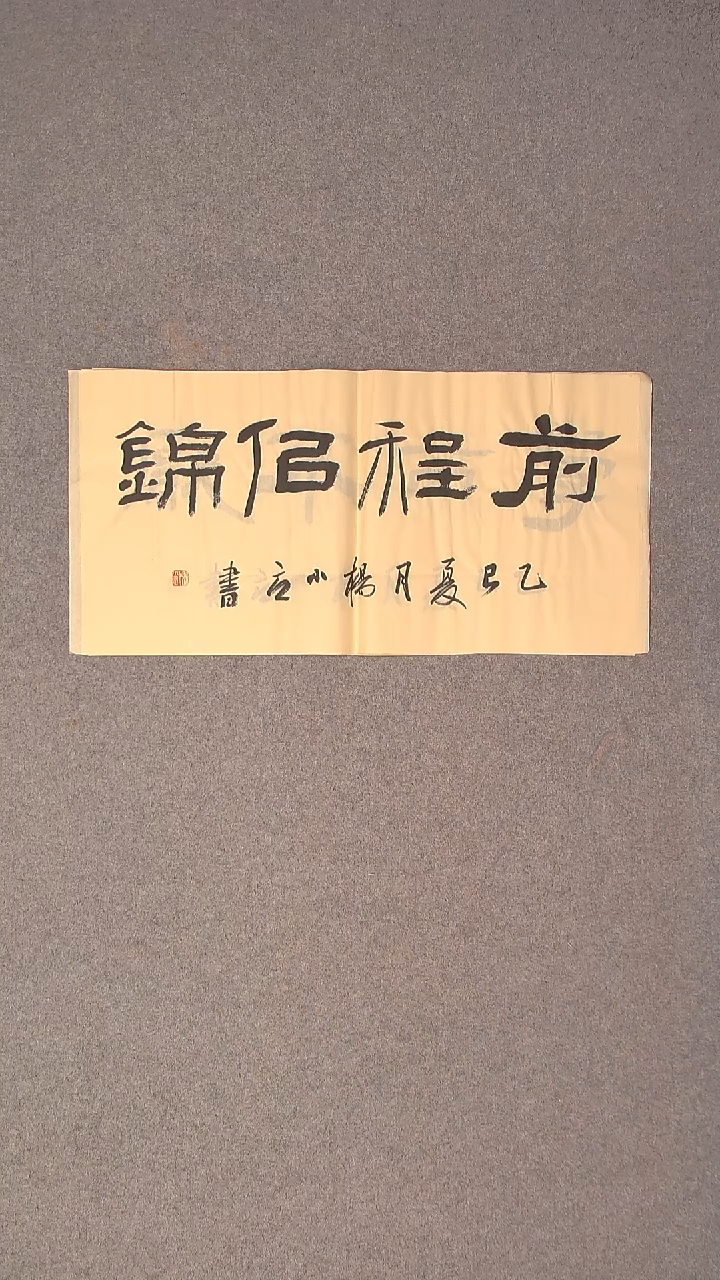 前程佀錦
乙巳夏月楊小書